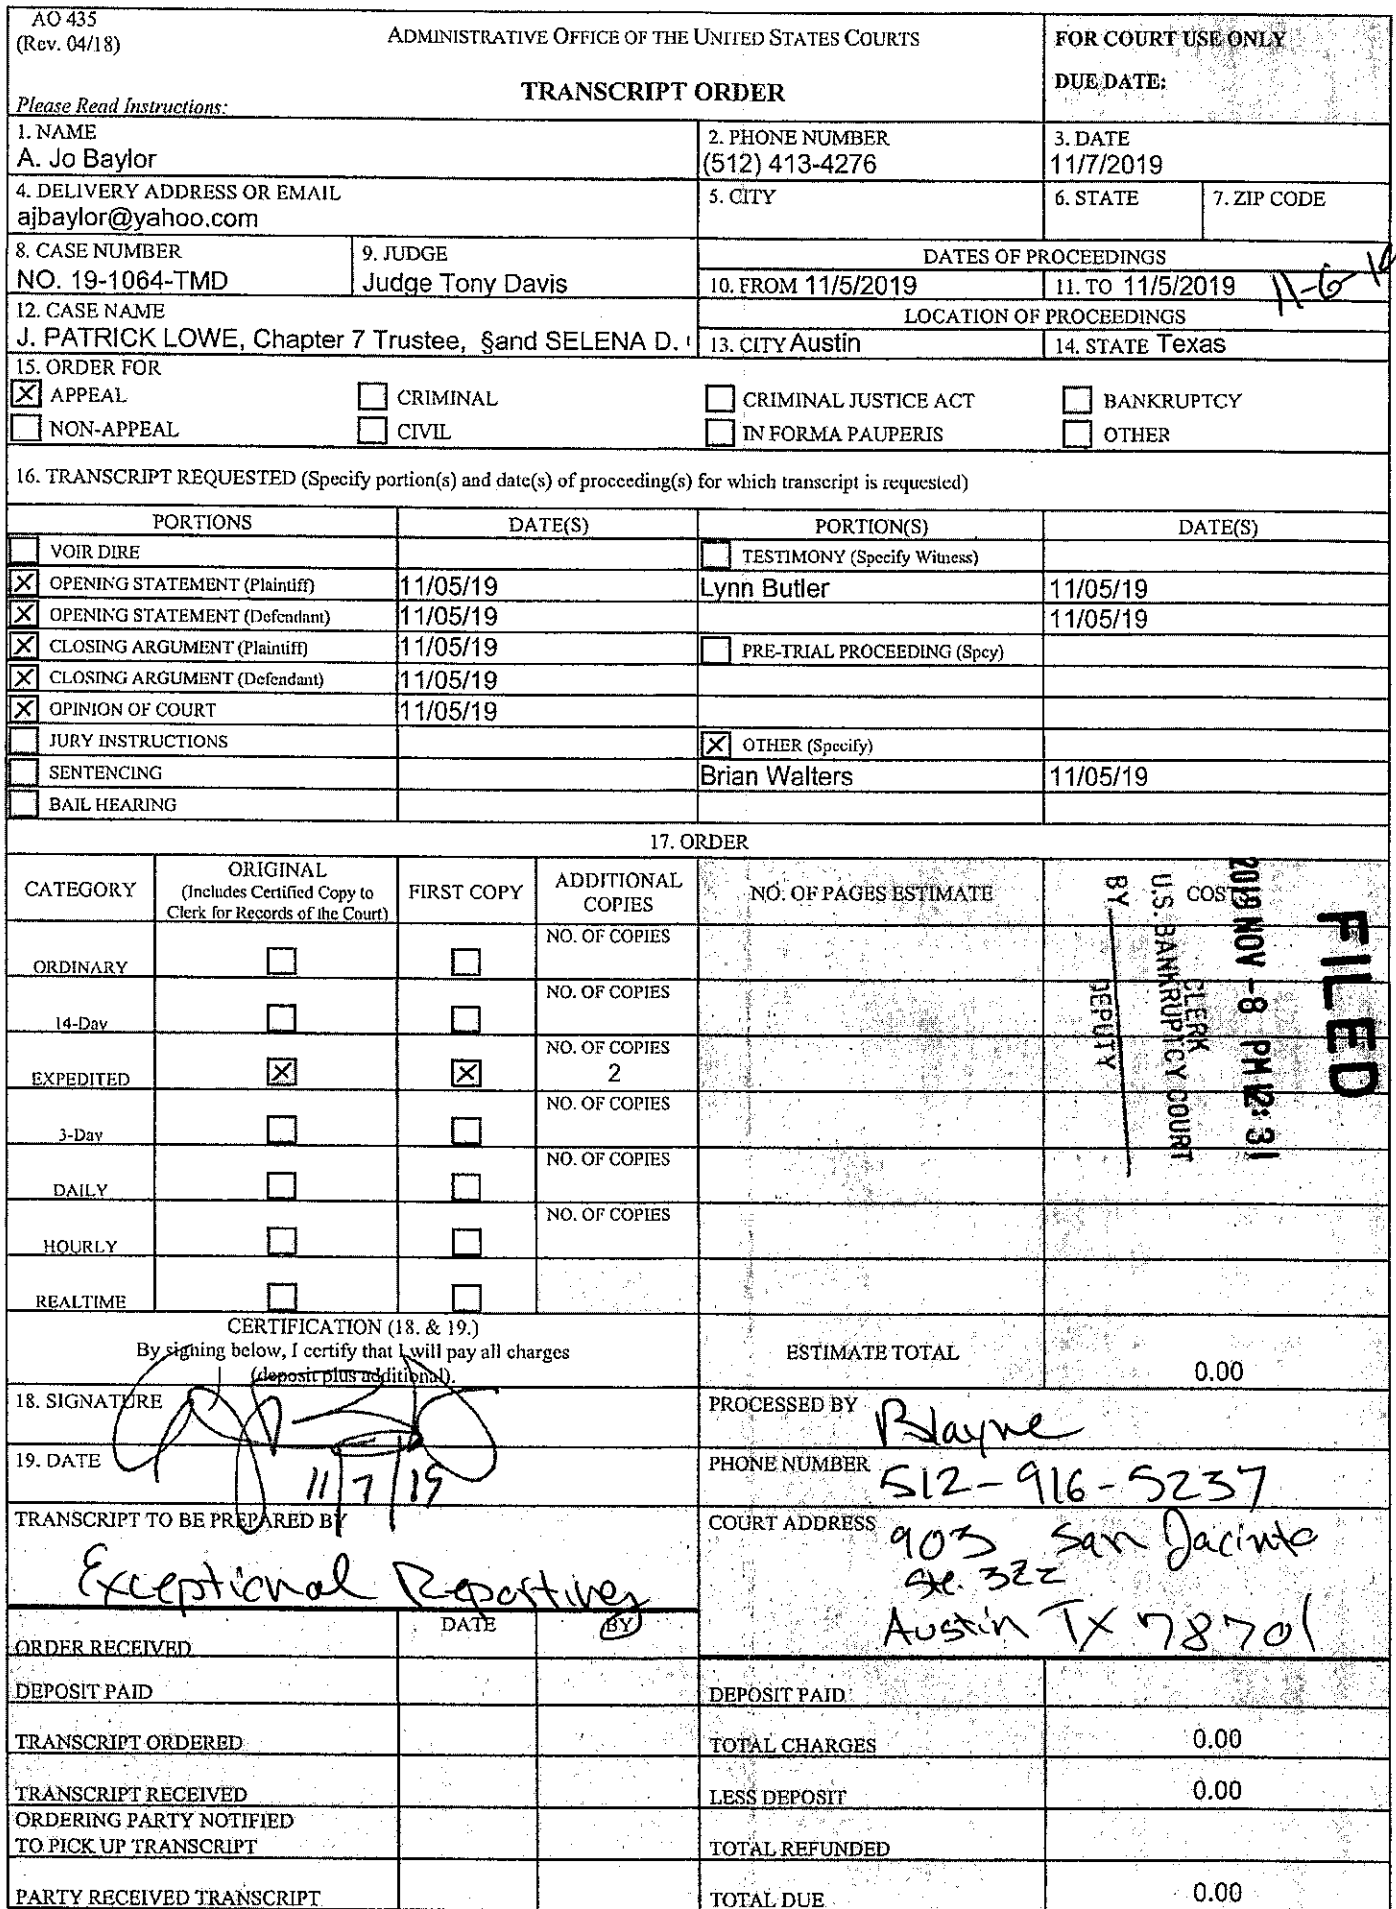 AO 435
(Rev. 04/18)
ADMINISTRATIVE OFFICE OF THE UNITED STATES COURTS
FOR COURT USE ONLY
TRANSCRIPT ORDER
DUE DATE:
Please Read Instructions:
1. NAME
A. Jo Baylor
2. PHONE NUMBER
(512) 413-4276
3. DATE
11/7/2019
4. DELIVERY ADDRESS OR EMAIL
ajbaylor@yahoo.com
5. CITY
6. STATE
7. ZIP CODE
8. CASE NUMBER
NO. 19-1064-TMD
9. JUDGE
Judge Tony Davis
DATES OF PROCEEDINGS
10. FROM 11/5/2019
11. TO 11/5/2019
11-6-19
12. CASE NAME
J. PATRICK LOWE, Chapter 7 Trustee, §and SELENA D.
LOCATION OF PROCEEDINGS
13. CITY Austin
14. STATE Texas
15. ORDER FOR
APPEAL CRIMINAL CRIMINAL JUSTICE ACT BANKRUPTCY
NON-APPEAL CIVIL IN FORMA PAUPERIS OTHER
16. TRANSCRIPT REQUESTED (Specify portion(s) and date(s) of proceeding(s) for which transcript is requested)
PORTIONS DATE(S) PORTION(S) DATE(S)
VOIR DIRE TESTIMONY (Specify Witness)
OPENING STATEMENT (Plaintiff) 11/05/19 Lynn Butler 11/05/19
OPENING STATEMENT (Defendant) 11/05/19 11/05/19
CLOSING ARGUMENT (Plaintiff) 11/05/19 PRE-TRIAL PROCEEDING (Spcy)
CLOSING ARGUMENT (Defendant) 11/05/19
OPINION OF COURT 11/05/19
JURY INSTRUCTIONS OTHER (Specify)
SENTENCING Brian Walters 11/05/19
BAIL HEARING
17. ORDER
CATEGORY
ORIGINAL
(Includes Certified Copy to
Clerk for Records of the Court)
FIRST COPY
ADDITIONAL
COPIES
NO. OF PAGES ESTIMATE
COST
NO. OF COPIES
ORDINARY
NO. OF COPIES
14-Day
NO. OF COPIES
EXPEDITED 2
NO. OF COPIES
3-Day
NO. OF COPIES
DAILY
NO. OF COPIES
HOURLY
REALTIME
FILED
2019 NOV -8 PM 12:31
CLERK
U.S. BANKRUPTCY COURT
BY
DEPUTY
CERTIFICATION (18. & 19.)
By signing below, I certify that I will pay all charges
(deposit plus additional).
ESTIMATE TOTAL 0.00
18. SIGNATURE
PROCESSED BY Blayne
19. DATE 11/7/19
PHONE NUMBER 512-916-5237
TRANSCRIPT TO BE PREPARED BY
Exceptional Reporting
COURT ADDRESS 903 San Jacinto
Ste. 322
Austin TX 78701
DATE BY
ORDER RECEIVED
DEPOSIT PAID DEPOSIT PAID
TRANSCRIPT ORDERED TOTAL CHARGES 0.00
TRANSCRIPT RECEIVED LESS DEPOSIT 0.00
ORDERING PARTY NOTIFIED
TO PICK UP TRANSCRIPT TOTAL REFUNDED
PARTY RECEIVED TRANSCRIPT TOTAL DUE 0.00